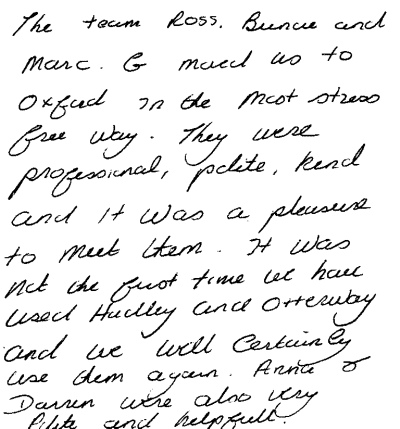 The team Ross. Buncie and
Marc. G moved us to
Oxford in the most stress
free way. They were
professional, polite, kind
and it was a pleasure
to meet them. It was
not the first time we have
used Hudley and Otterway
and we will certainly
use them again. Anna &
Darren were also very
Polite and helpfull.